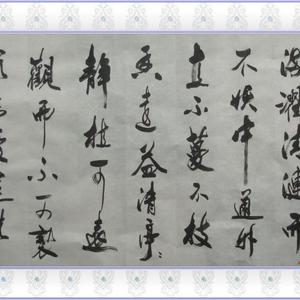 染濯清漣而
不妖中通外
直不蔓不枝
香遠益清亭〻
静植可遠
觀而不可褻